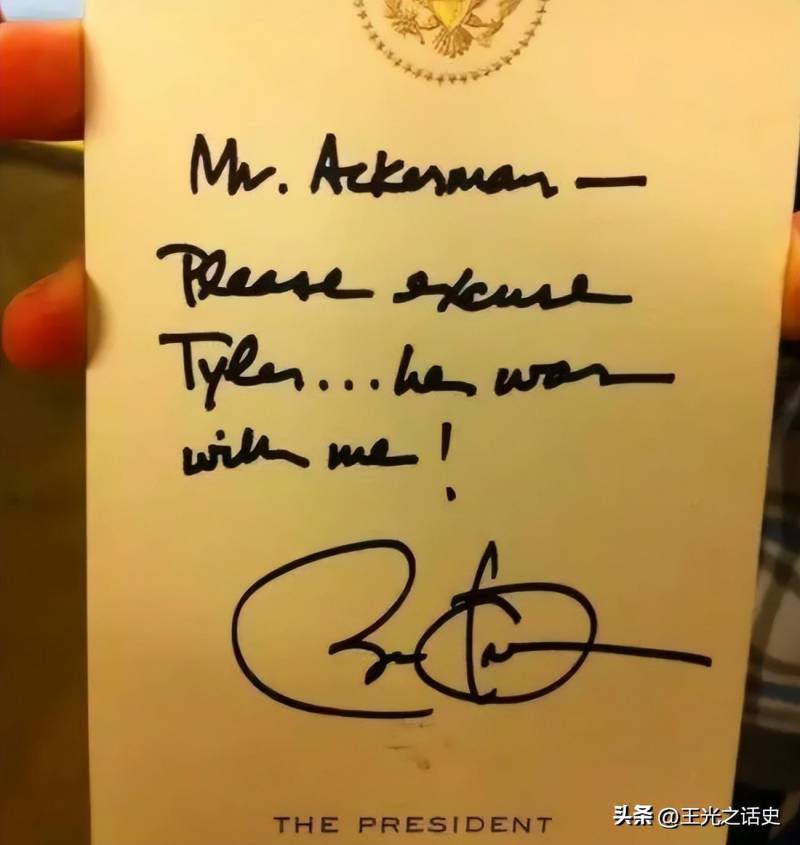 Mr. Ackerman —
Please excuse
Tyler...he was
with me!
THE PRESIDENT
头条 @王光之话史